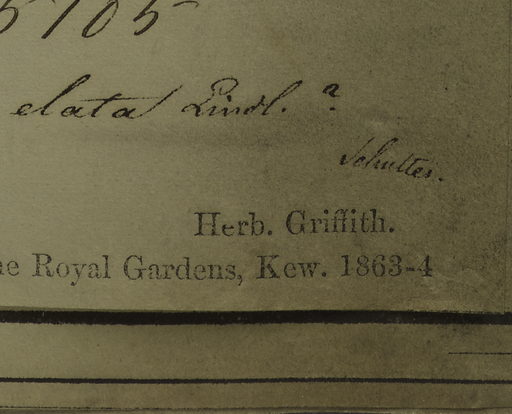 5105
elata Lindl. ?
Herb. Griffith.
he Royal Gardens, Kew. 1863-4